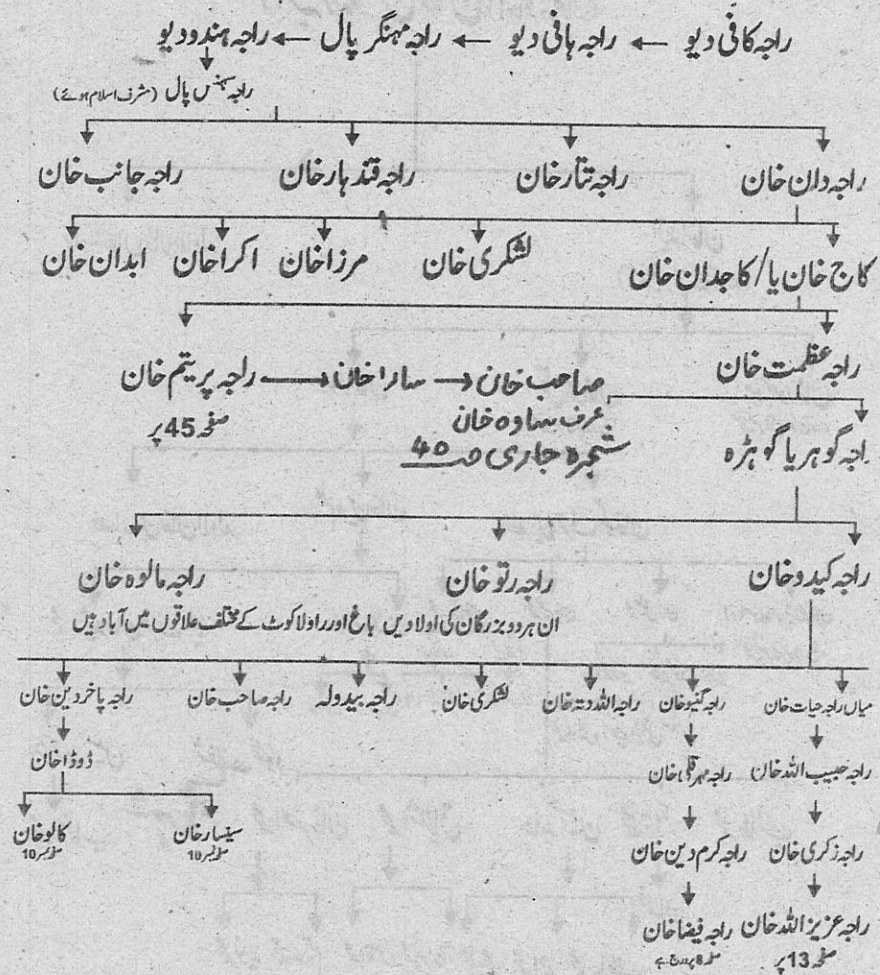 راجہ کافی دیو ← راجہ ہافی دیو ← راجہ مہنگر پال ← راجہ ہندو دیو
راجہ سہنس پال (مشرف اسلام ہوئے)
راجہ دان خان راجہ تتار خان راجہ قندہار خان راجہ جانب خان
کاج خان یا/کاجدان خان لشکری خان مرزا خان اکرا خان ابدان خان
راجہ عظمت خان راجہ پریتم خان → سارا خان → صاحب خان
عرف ساوہ خان
صفحہ 45 پر
شجرہ جاری صہ 40
راجہ گوہر یا گوہڑہ
راجہ کیدو خان راجہ رتو خان راجہ مالوہ خان
ان ہر دو بزرگان کی اولادیں باغ اور راولاکوٹ کے مختلف علاقوں میں آباد ہیں
میاں راجہ حیات خان راجہ گنیو خان راجہ اللہ دتہ خان لشکری خان راجہ بیدولہ راجہ صاحب خان راجہ پاخردین خان
راجہ حبیب اللہ خان راجہ مہر قلی خان ڈوڈا خان
راجہ زکری خان راجہ کرم دین خان سینسار خان کالو خان
صفحہ نمبر 10 صفحہ نمبر 10
راجہ عزیز اللہ خان راجہ فیضا خان
صفحہ 13 پر صفحہ 8 پر درج ہے